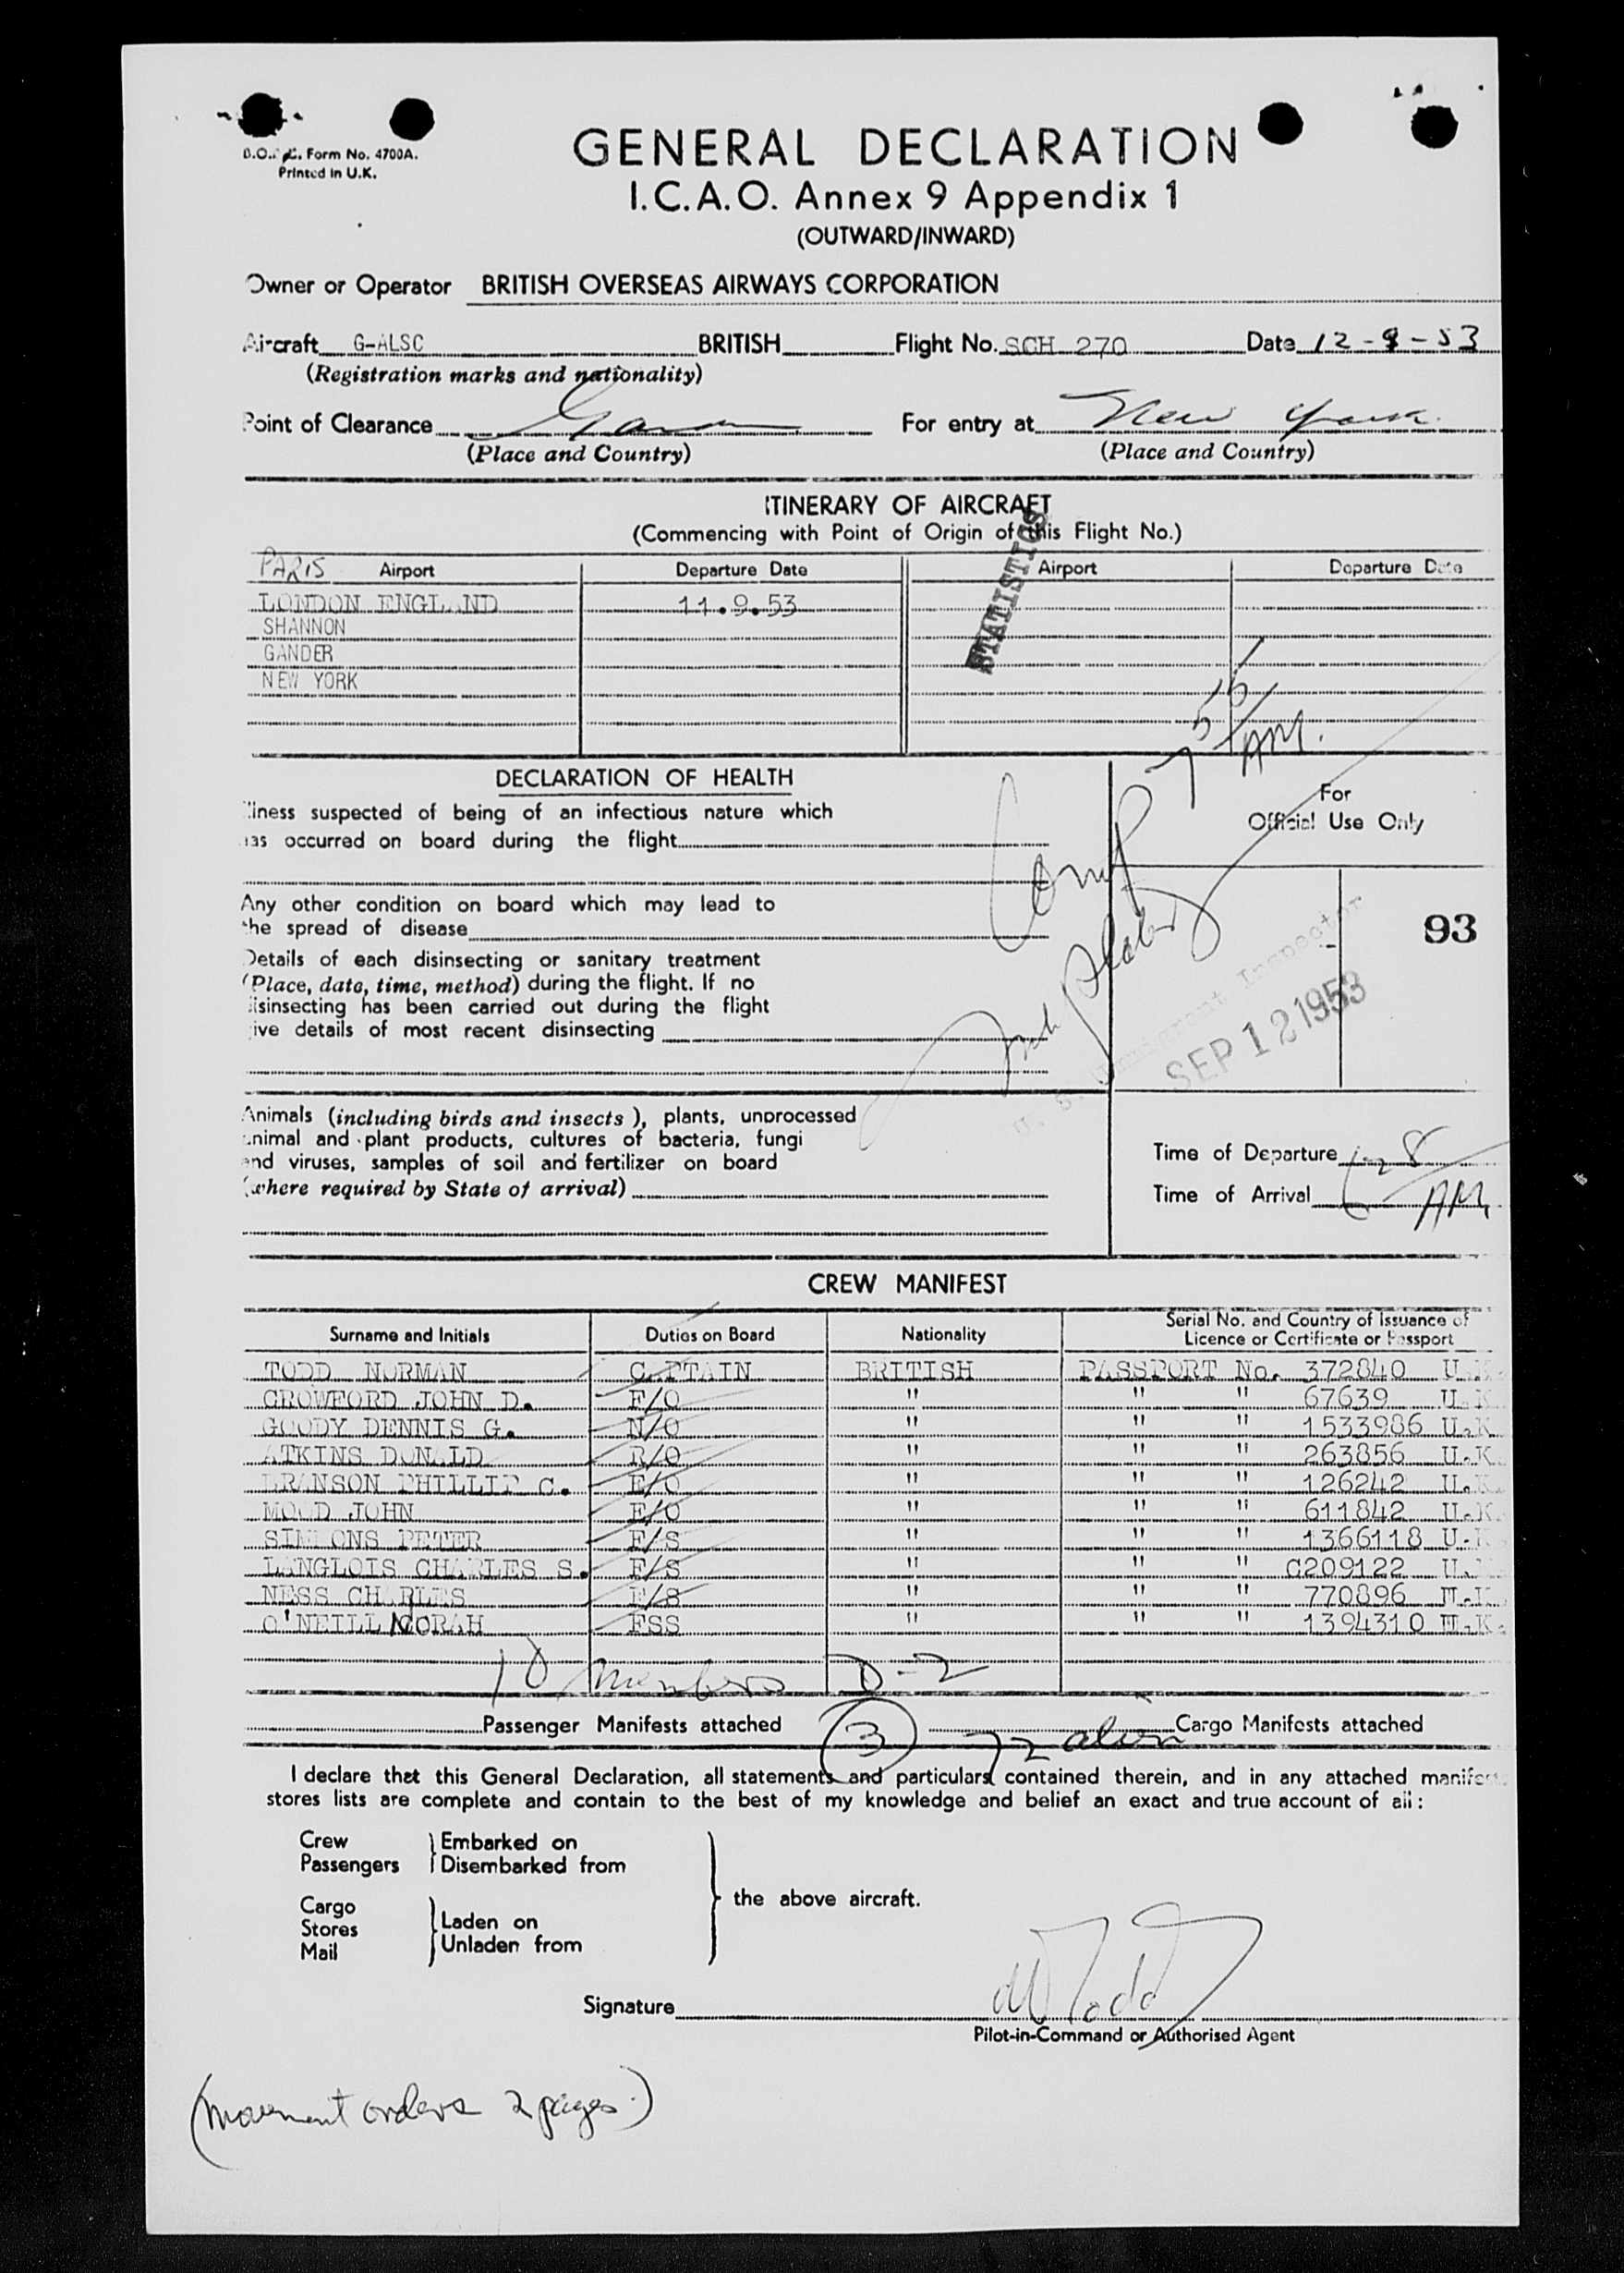 Form No. 4700A.
Printed in U.K.
GENERAL DECLARATION
I.C.A.O. Annex 9 Appendix 1
(OUTWARD/INWARD)
Owner or Operator BRITISH OVERSEAS AIRWAYS CORPORATION
Aircraft G-ALSC BRITISH Flight No. SCH 270 Date 12-9-53
(Registration marks and nationality)
Point of Clearance For entry at New York.
(Place and Country) (Place and Country)
ITINERARY OF AIRCRAFT
(Commencing with Point of Origin of this Flight No.)
STATISTICS
PARIS Airport Departure Date Airport Departure Date
LONDON ENGLAND 11.9.53
SHANNON
GANDER
NEW YORK
7 55/AM.
DECLARATION OF HEALTH
Illness suspected of being of an infectious nature which
has occurred on board during the flight
For
Official Use Only
Any other condition on board which may lead to
the spread of disease
93
Details of each disinsecting or sanitary treatment
(Place, date, time, method) during the flight. If no
disinsecting has been carried out during the flight
give details of most recent disinsecting
U. S. Immigrant Inspector
SEP 12 1953
Animals (including birds and insects), plants, unprocessed
animal and plant products, cultures of bacteria, fungi
and viruses, samples of soil and fertilizer on board
(where required by State of arrival)
Time of Departure
Time of Arrival AM.
CREW MANIFEST
Surname and Initials Duties on Board Nationality Serial No. and Country of Issuance of Licence or Certificate or Passport
TODD NORMAN CAPTAIN BRITISH PASSPORT No. 372840 U.K.
CROWFORD JOHN D. F/O " " " 67639 U.K
GOODY DENNIS G. N/O " " " 1533986 U.K.
ATKINS DONALD R/O " " " 263856 U.K.
BRANSON PHILLIP C. E/O " " " 126242 U.K.
MOOD JOHN E/O " " " 611842 U.K.
SIMMONS PETER F/S " " " 1366118 U.K.
LANGLOIS CHARLES S. F/S " " " C209122 U.K.
NESS CHARLES F/S " " " 770896 U.K.
O'NEILL NORAH FSS " " " 1394310 U.K.
10 members D-2
Passenger Manifests attached 3 72 alien Cargo Manifests attached
I declare that this General Declaration, all statements and particulars contained therein, and in any attached manifest
stores lists are complete and contain to the best of my knowledge and belief an exact and true account of all:
Crew Embarked on
Passengers Disembarked from
the above aircraft.
Cargo
Stores Laden on
Mail Unladen from
Signature N Todd
Pilot-in-Command or Authorised Agent
(movement orders 2 pages.)